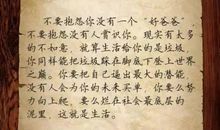 不要抱怨你没有一个“好爸爸”，
不要抱怨没有人赏识你。现实有太多
的不如意，就算生活给你的是垃圾，
你同样能把垃圾踩在脚底下登上世界
之巅。你要把自己逼出最大的潜能，
没有人会为你的未来买单，你要么努
力向上爬，要么烂在社会最底层的
泥里，这就是生活。